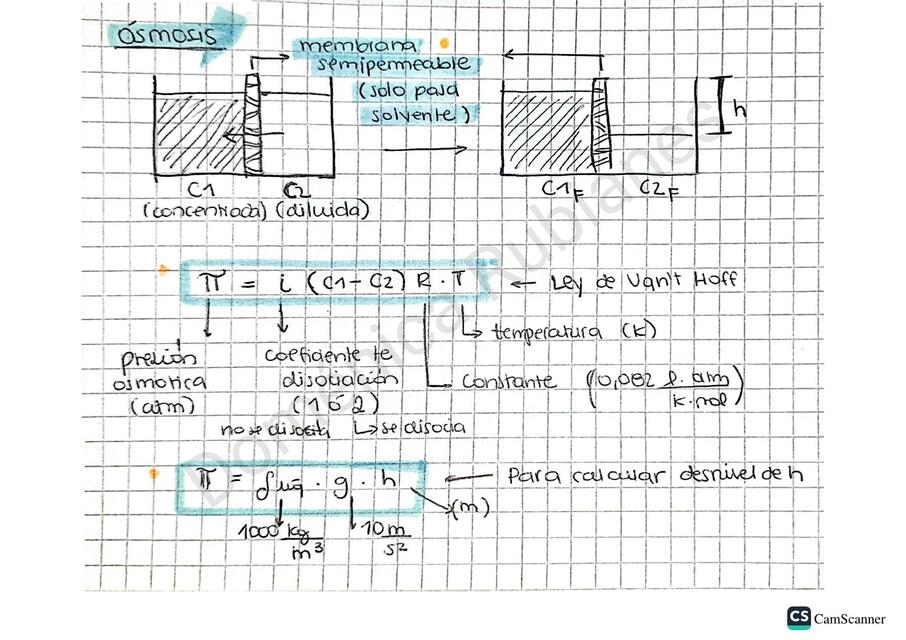 ósmosis
membrana
semipermeable
(solo pasa
solvente)
h
C1 C2
(concentrada) (diluida)
C1F C2F
π = i (C1-C2) R . T ← Ley de Van't Hoff
temperatura (K)
presión
osmotica
(atm)
coeficiente de
disociación
(1 ó 2)
no se disocia ↳ se disocia
Constante (0,082 l. atm / K. mol)
π = δ líq . g . h ← Para calcular desnivel de h
(m)
1000 kg/m³ 10 m/s²
Doménica Rubianes
CS CamScanner